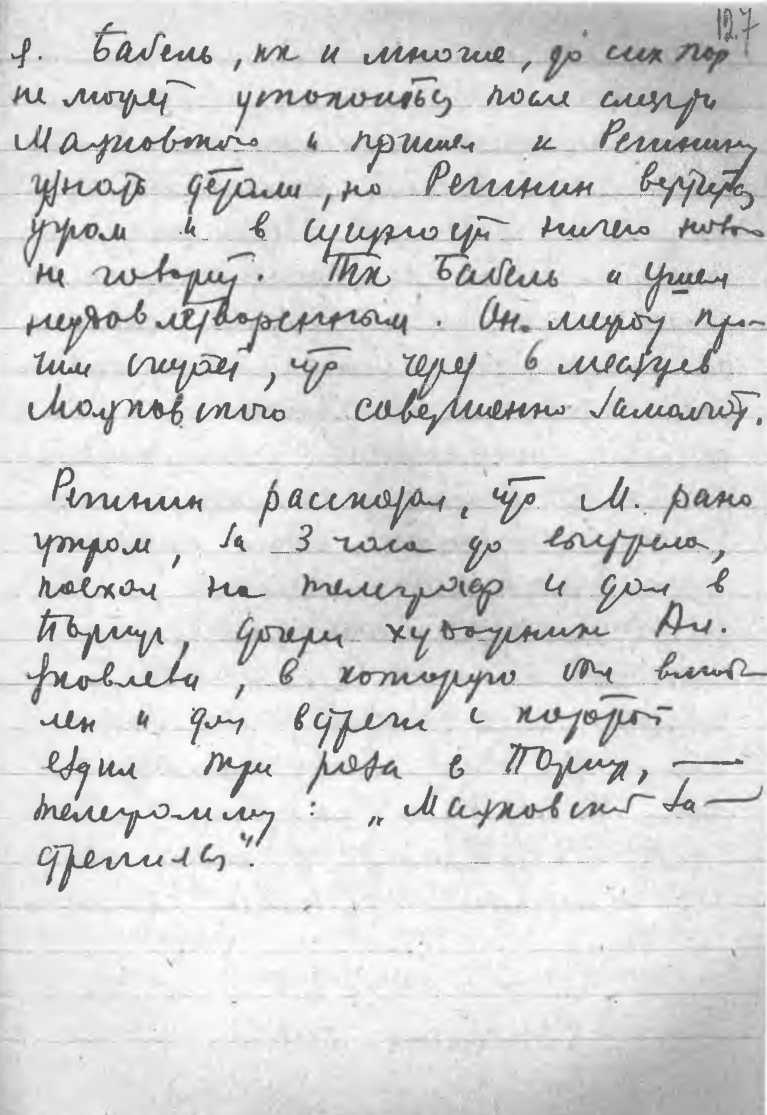 127
я. Бабель, как и многие, до сих пор
не может успокоиться после смерти
Маяковского и пришел к Регинину
узнать детали, но Регинин вертится
ужом и в сущности ничего нового
не говорит. Так Бабель и ушел
неудовлетворенным. Он между про-
чим считает, что через 6 месяцев
Маяковского совершенно замолчат.
Регинин рассказал, что М. рано
утром, за 3 часа до выстрела,
поехал на телеграф и дал в
Париж, дочери художника Ал.
Яковлева, в которую был влюб-
лен и для встречи с которой
ездил три раза в Париж, —
телеграмму: „Маяковский за-
стрелился".